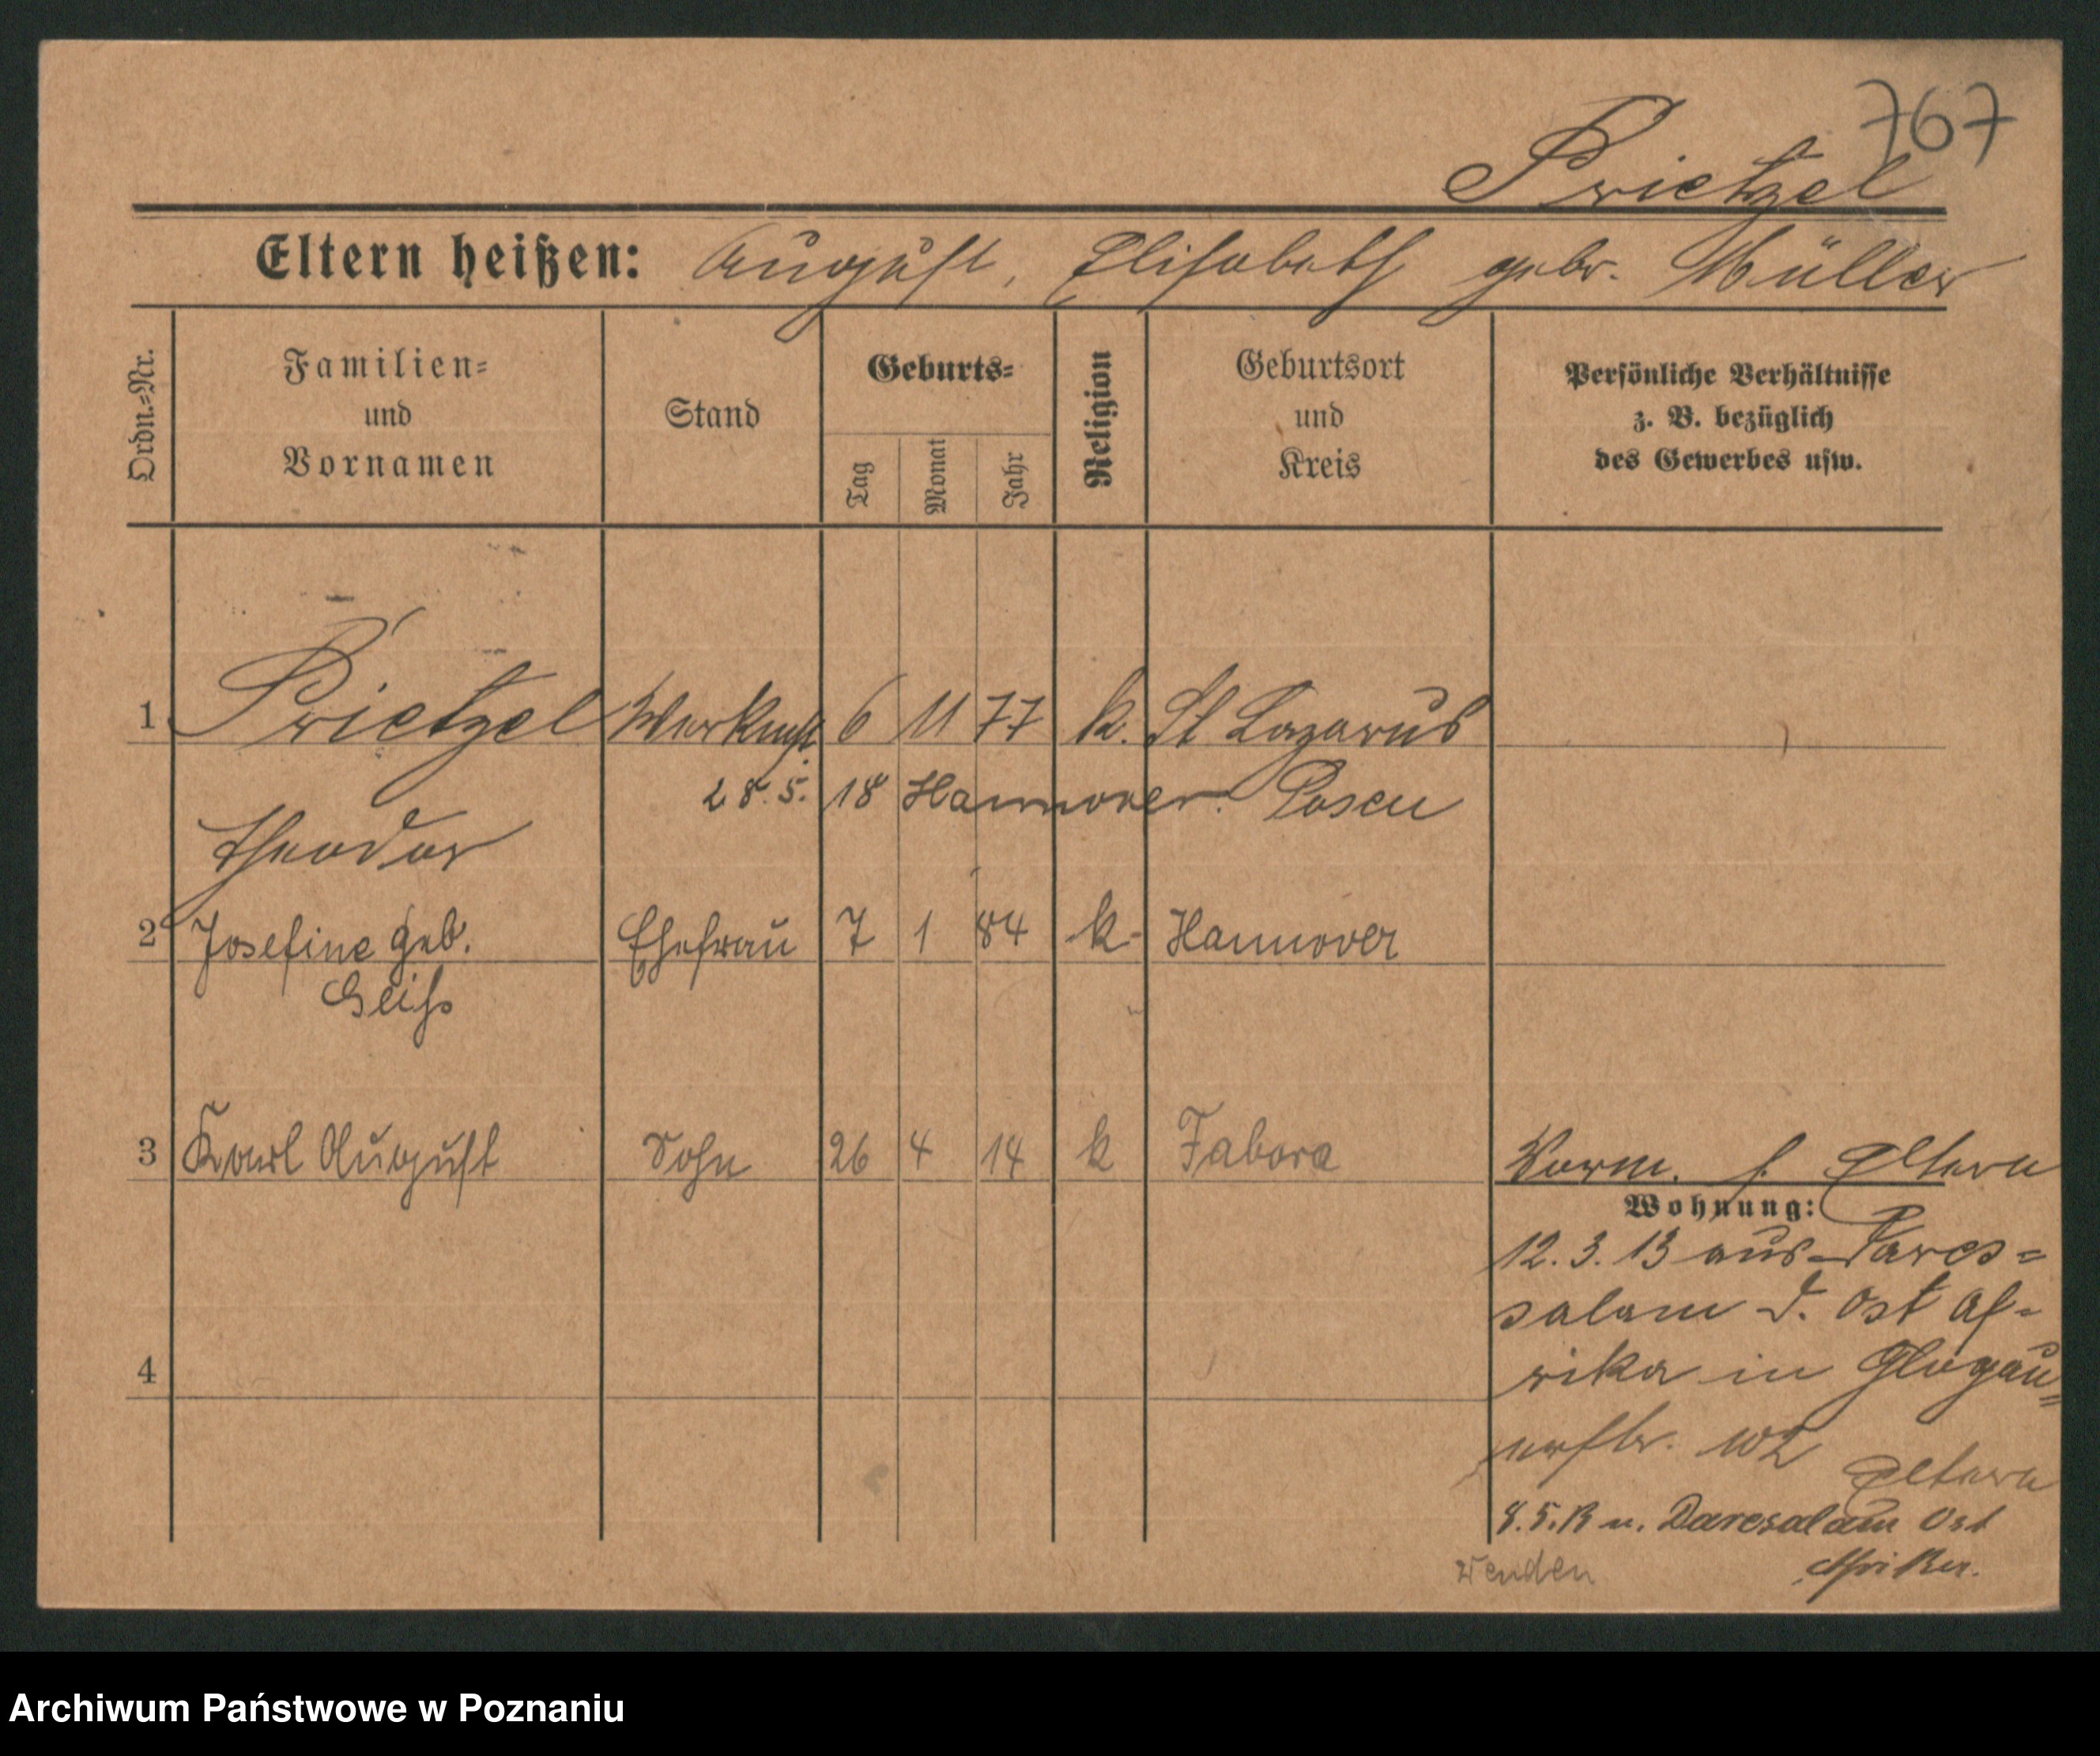 767
Prietzel
Eltern heißen: August, Elisabeth gebr. Müller
Ordn.=Nr.
Familien=
und
Vornamen
Stand
Geburts=
Tag
Monat
Jahr
Religion
Geburtsort
und
Kreis
Persönliche Verhältnisse
z. B. bezüglich
des Gewerbes usw.
1 Prietzel 6 11 77 k. St Lazarus
28.5. 18 Hannover. Posen
Theodor
2 Josefine geb. Ehefrau 7 1 84 k. Hannover
Geiß
3 Karl August Sohn 26 4 14 k Tabora
Vorm. s. Eltern
Wohnung:
12.3.13 aus Dares=
salam D. Ost Af=
rika in Glogau=
erstr. 102
Eltern
8.5.13 n. Daresalam Ost
Afrika.
Wenden
4
Archiwum Państwowe w Poznaniu